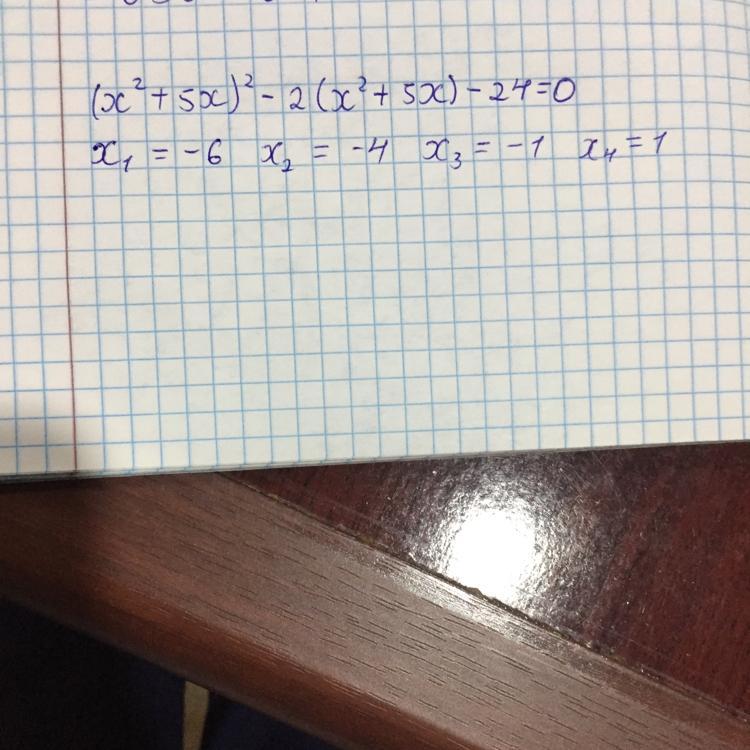 (x² + 5x)² - 2(x² + 5x) - 24 = 0
x₁ = -6 x₂ = -4 x₃ = -1 x₄ = 1